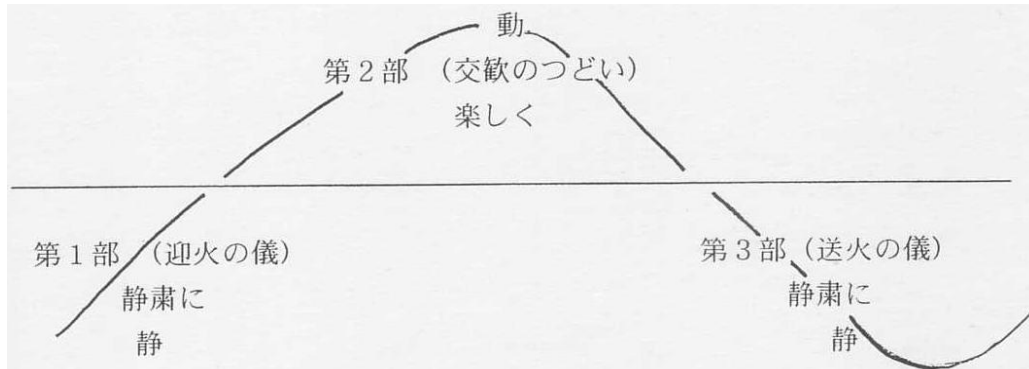 動
第２部　（交歓のつどい）
楽しく
第１部　（迎火の儀）
静粛に
静
第３部（送火の儀）
静粛に
静